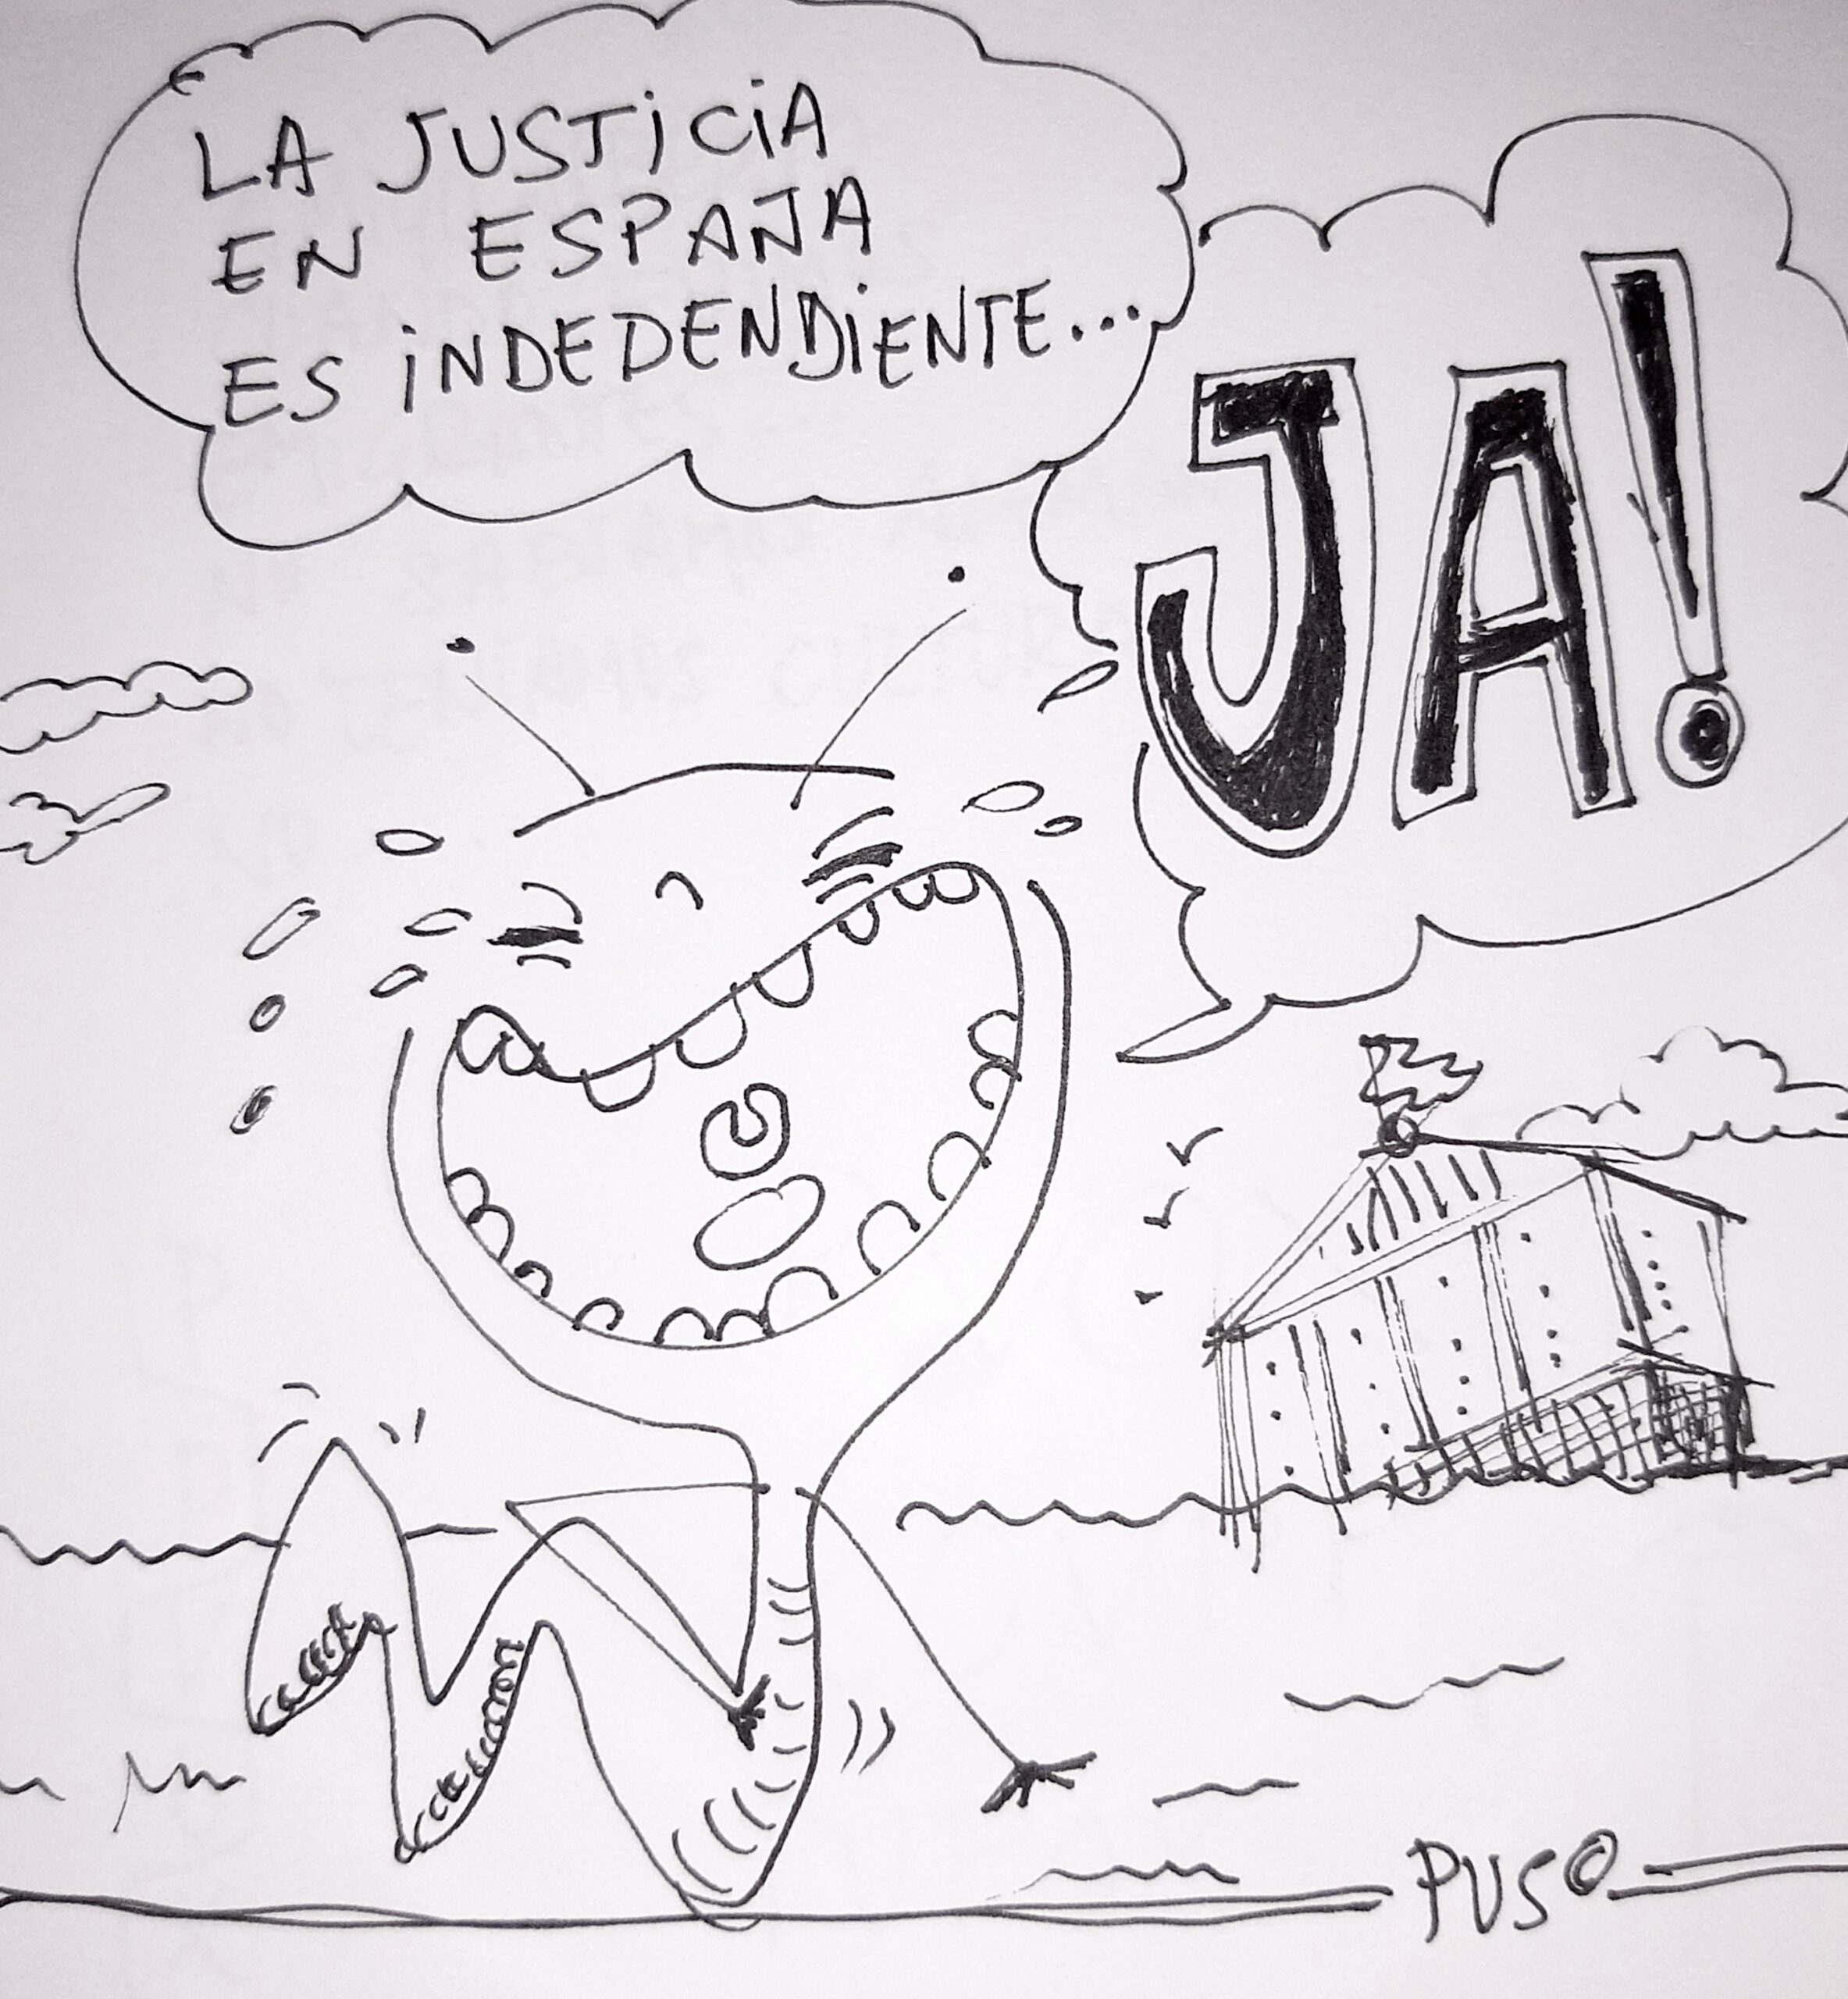 LA JUSTICIA
EN ESPAÑA
ES INDEDENDIENTE...
JA!
PUSO